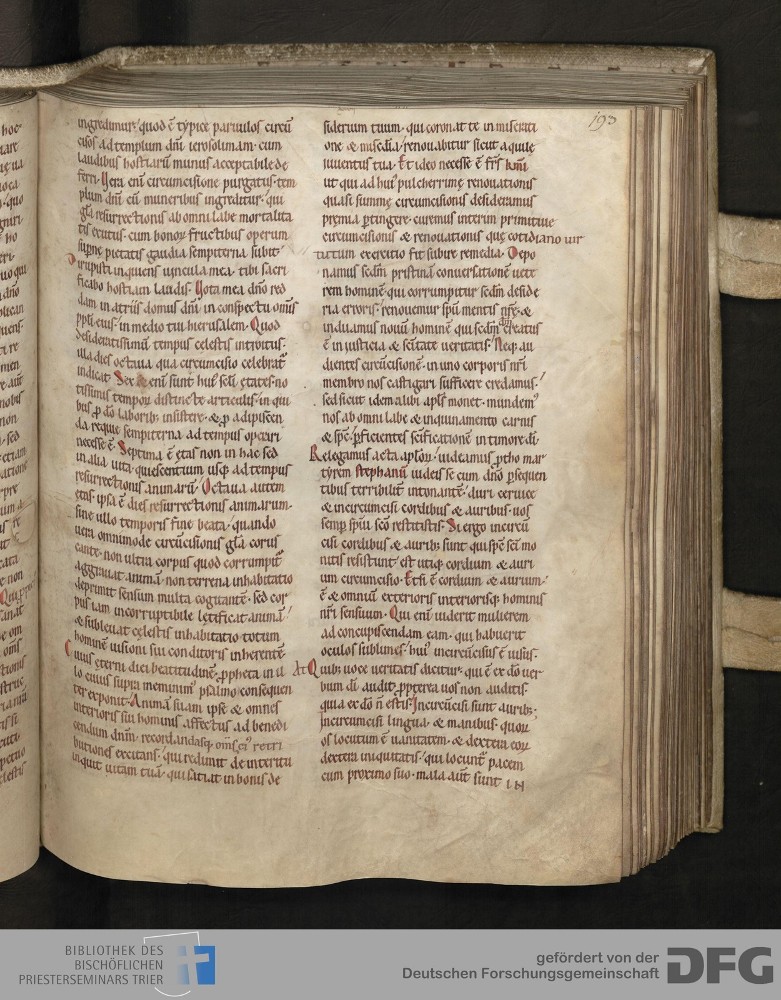 ingredimur; quod ē typice paruulos circū
cisos ad templum dn̄i ierosolimam. cum
laudibus hostiarū munus acceptabile de
ferri. Vera eni circumcisione purgatus. tem
plum dn̄i cū muneribus ingreditur. qui
gl̄a resurrectionis ab omni labe mortalita
tis exutus. cum bonoꝝ fructibus operum
supnę pietatis gaudia sempiterna subit.
Dirupisti inquiens uincula mea. tibi sacri
ficabo hostiam laudis. Vota mea dn̄o red
dam in atriis domus dn̄i. in conspectu om̄is
ppl̄i eius. in medio tui hierusalem. Quod
desideratissimū tempus celestis introitus.
illa dies octaua qua circumcisio celebrat̄
indicat. Sex eni sunt hui seclī ętates no
tissimis tempoꝝ distincte articulis. in qui
bus ꝓ dō laborib; insistere. & ꝓ adipiscen
da requie sempiterna ad tempus operari
necesse ē. Septima ē ętas non in hac sed
in alia uita. quiescentium usq; ad tempus
resurrectionis animarū. Octaua autem
ętas. ipsa ē dies resurrectionis animarum.
sine ullo temporis fine beata. quando
uera omnimode circūcisionis gl̄a corus
cante. non ultra corpus quod corrumpit̄
aggrauat animā. non terrena inhabitatio
deprimit sensum multa cogitantē. sed cor
pus iam incorruptibile lętificat animā.
& subleuat cęlestis inhabitatio totum
hominē uisioni sui conditoris inherentē.
Cuius ęterni diei beatitudinē ꝓpheta in il
lo cuius supra memini psalmo consequen
ter exponit. Animā suam ipse & omnes
interioris sui hominis affectus ad benedi
cendum dn̄m. recordandasq; om̄s ei retri
butiones excitans. qui redimit de interitu
inquit uitam tuā. qui satiat in bonis de
193
siderium tuum. qui coronat te in miserati
one & mis̄dia. renouabitur sicut aquilę
iuuentus tua. Et ideo necesse ē frs̄ kmi
ut qui ad hui pulcherrimę renouationis
quasi summę circumcisionis desideramus
pręmia ꝑtingere. curemus interim primitiuę
circumcisionis & renouationis quę cotidiano uir
tutum exercitio fit subire remedia. Depo
namus sedm̄ pristinā conuersationē uete
rem hominē qui corrumpitur sedm̄ deside
ria erroris. renouemur spū mentis nrę. &
induamus nouū hominē qui sedm̄ dm̄ creatus
ē in justicia & sc̄itate ueritatis. Neq; au
dientes circūcisionē. in uno corporis nrī
membro nos castigari sufficere credamus.
sed sicut idem alibi apls̄ monet. mundem
nos ab omni labe & inquinamento carnis
& spc̄. ꝑficientes sc̄ificationē in timore dī.
Relegamus acta aploꝝ. uideamus ꝓtho mar
tyrem stephanū. iudeis se cum dn̄o ꝑsequen
tibus terribilit̄ intonantē. duri ceruice
& incircumcisi cordibus & auribus. uos
semp̄ spū sc̄o restitistis. Si ergo incircū
cisi cordibus & aurib; sunt qui spc̄ sc̄i mo
nitis resistunt. est utiq; cordium & auri
um circumcisio. Et si ē cordium & aurium.
ē & omniū exterioris interiorisq; hominis
nrī sensuum. Qui eni uiderit mulierem
ad concupiscendam eam. qui habuerit
oculos sublimes. hui incircūcisus ē uisus.
At Quib; uoce ueritatis dicitur. qui ē ex dō uer
bum dī audit. ꝓpterea uos non auditis.
quia ex dō n̄ estis. Incircūcisi sunt aurib;.
Incircumcisi lingua & manibus. quoꝝ
os locutum ē uanitatem. & dextera eoꝝ
dextera iniquitatis. qui locunt̄ pacem
cum proximo suo. mala aūt sunt in
BIBLIOTHEK DES
BISCHÖFLICHEN
PRIESTERSEMINARS TRIER
gefördert von der
Deutschen Forschungsgemeinschaft
DFG